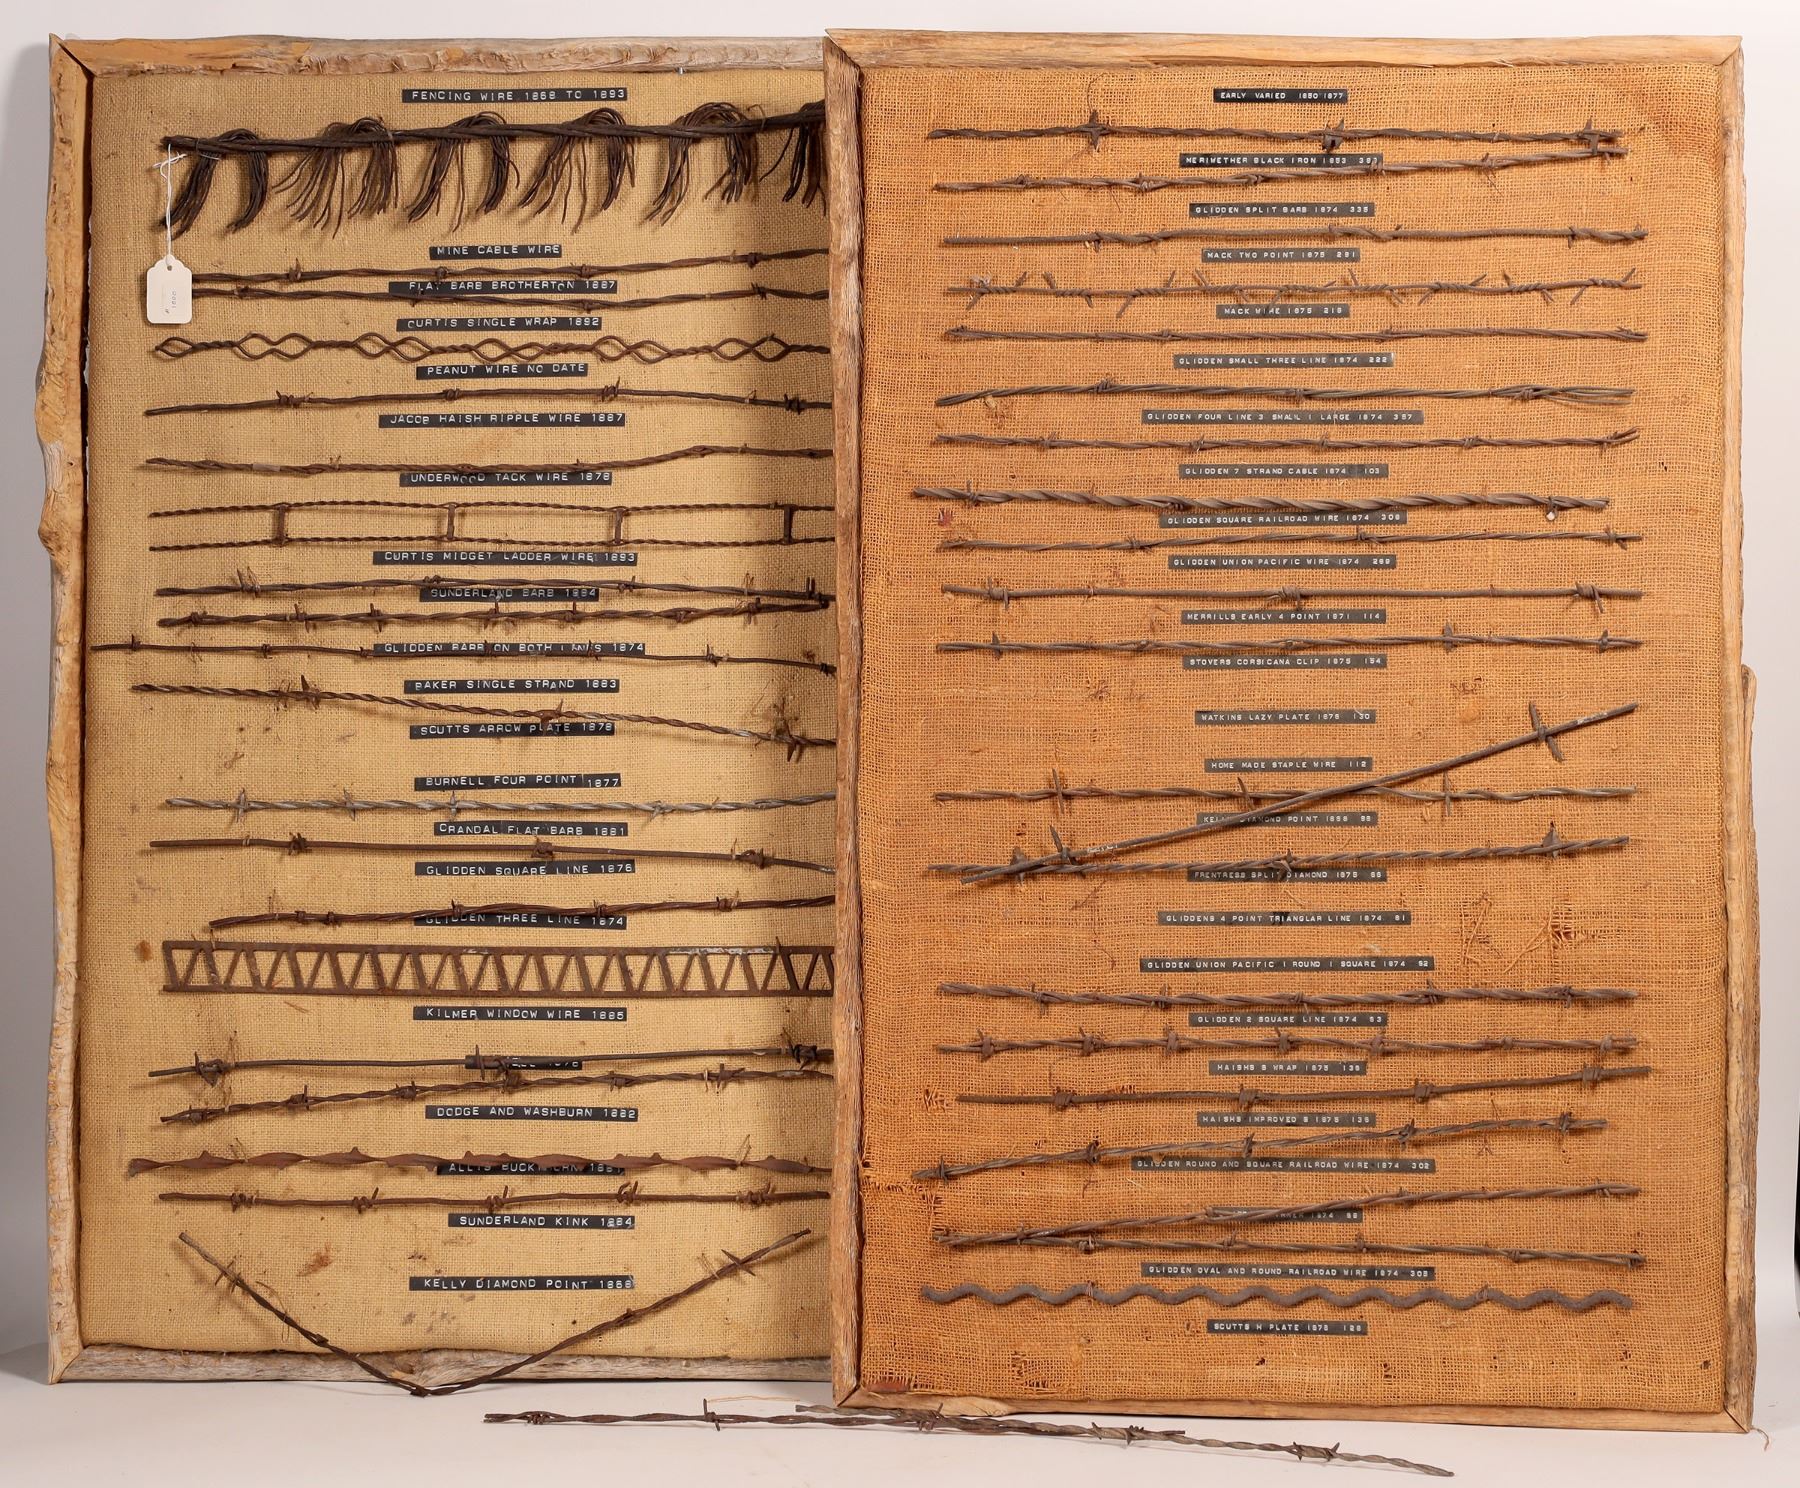 FENCING WIRE 1868 TO 1893
MINE CABLE WIRE
FLAT BARB BROTHERTON 1887
CURTIS SINGLE WRAP 1892
PEANUT WIRE NO DATE
JACOB HAISH RIPPLE WIRE 1887
UNDERWOOD TACK WIRE 1878
CURTIS MIDGET LADDER WIRE 1893
SUNDERLAND BARB 1884
GLIDDEN BARB ON BOTH LINES 1874
BAKER SINGLE STRAND 1883
SCUTTS ARROW PLATE 1878
BURNELL FOUR POINT 1877
CRANDAL FLAT BARB 1881
GLIDDEN SQUARE LINE 1876
GLIDDEN THREE LINE 1874
KILMER WINDOW WIRE 1885
DODGE AND WASHBURN 1882
ALLIS BUCKTHORN 1881
SUNDERLAND KINK 1884
KELLY DIAMOND POINT 1868
EARLY VARIED 1850 1877
MERIWETHER BLACK IRON 1853 393
GLIDDEN SPLIT BARB 1874 335
MACK TWO POINT 1875 291
MACK WIRE 1875 219
GLIDDEN SMALL THREE LINE 1874 222
GLIDDEN FOUR LINE 3 SMALL 1 LARGE 1874 357
GLIDDEN 7 STRAND CABLE 1874 103
GLIDDEN SQUARE RAILROAD WIRE 1874 306
GLIDDEN UNION PACIFIC WIRE 1874 269
MERRILLS EARLY 4 POINT 1871 114
STOVERS CORSICANA CLIP 1875 154
WATKINS LAZY PLATE 1876 130
HOME MADE STAPLE WIRE 112
KELLY DIAMOND POINT 1868 98
FRENTRESS SPLIT DIAMOND 1875 66
GLIDDENS 4 POINT TRIANGLAR LINE 1874 61
GLIDDEN UNION PACIFIC 1 ROUND 1 SQUARE 1874 62
GLIDDEN 2 SQUARE LINE 1874 63
HAISHS S WRAP 1875 136
HAISHS IMPROVED S 1875 135
GLIDDEN ROUND AND SQUARE RAILROAD WIRE 1874 302
1874
GLIDDEN OVAL AND ROUND RAILROAD WIRE 1874 305
SCUTTS H PLATE 1878 128